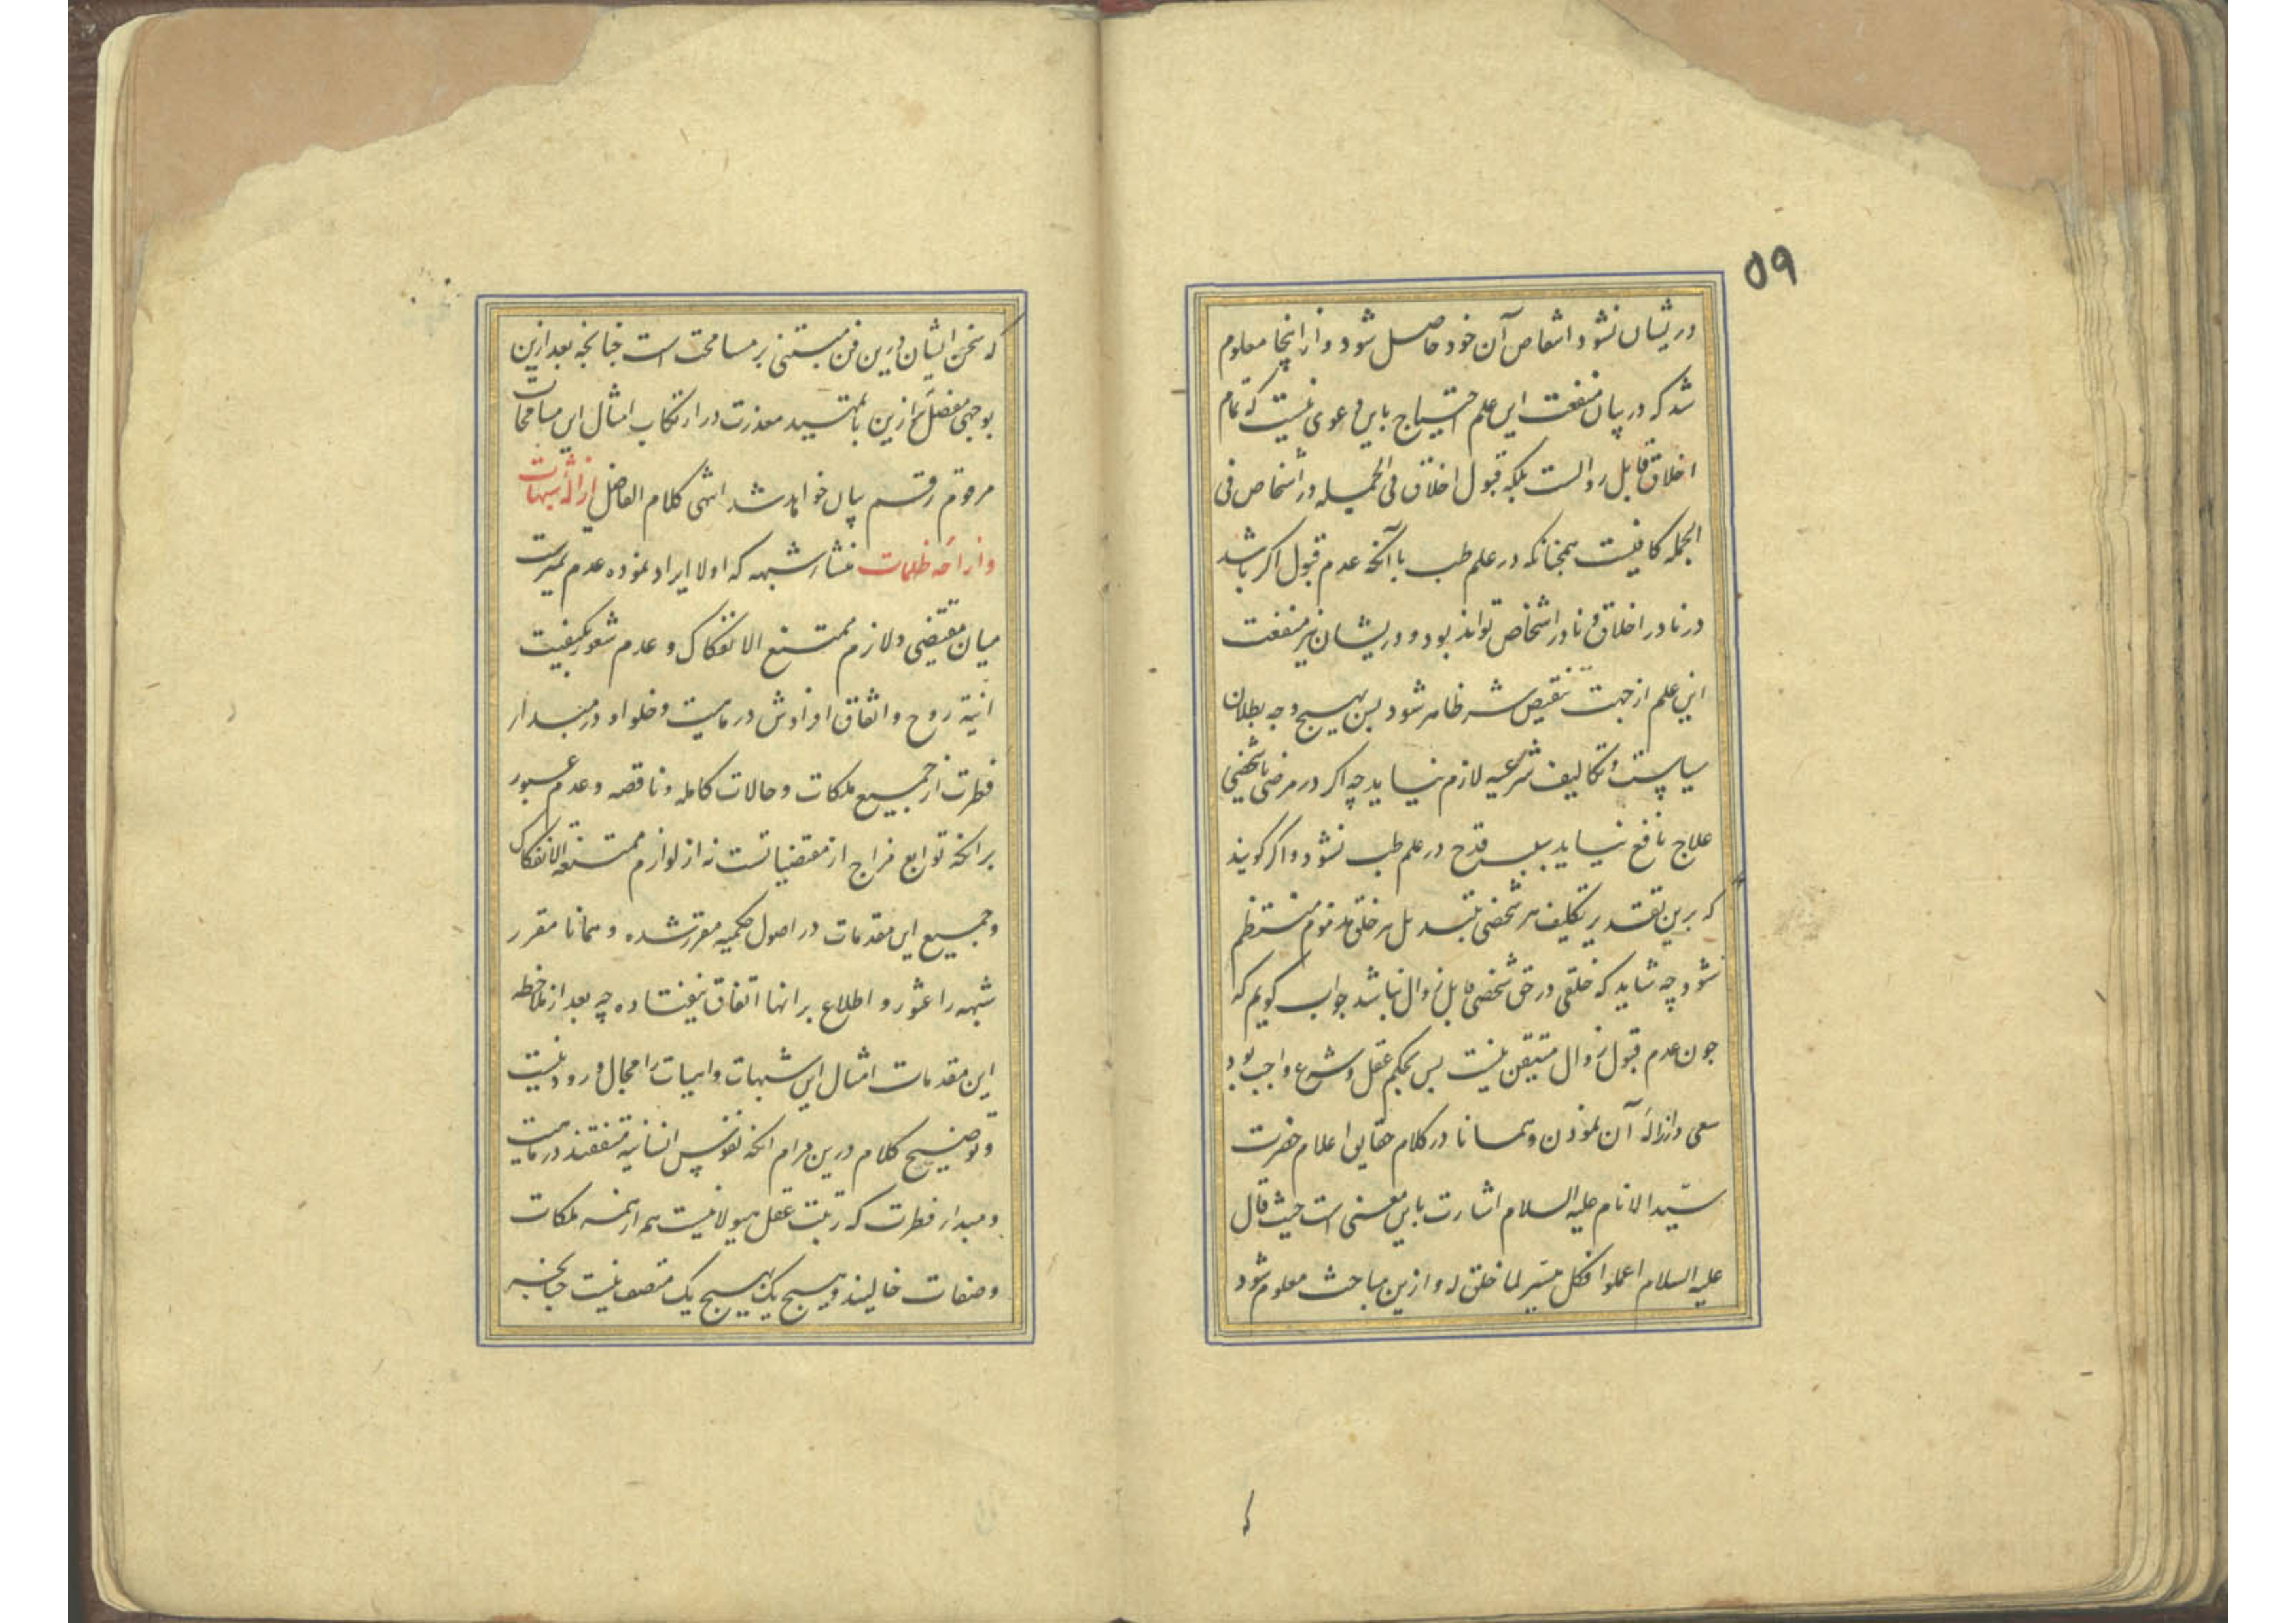 ۵۹
در یشان نشود انتقاص آن خود حاصل شود و از اینجا معلوم
شد که در بیان منفعت این علم احتیاج باین دعوی نیست که تمام
اخلاق قابل زوالست بلکه قبول اخلاق فی الجمله در اشخاص فی
الجمله کافیست همچنانکه در علم طب با آنکه عدم قبول اکر باشد
در نادر اخلاق و نادر اشخاص تواند بود و در یشان نیز منفعت
این علم از جهت تنقیص شر ظاهر شود پس بهیچ وجه بطلان
سیاست و تکالیف شرعیه لازم نیاید چه اکر در مرضی یا شخصی
علاج نافع نیاید سبب قدح در علم طب نشود و اکر کویند
که برین تقدیر تکلیف هر شخصی بتبدیل هر خلقی مذموم منتظم
نشود چه شاید که خلقی در حق شخصی قابل زوال نباشد جواب کویم که
جون عدم قبول زوال متیقن نیست پس بحکم عقل و شرع واجب بود
سعی در ازاله آن نمودن و همانا در کلام حقایق اعلام حضرت
سیّد الانام علیه السلام اشارت باین معنی است حیث قال
علیه السلام اعملوا فکل میسّر لما خلق له و ازین مباحث معلوم شود
که
که سخن ایشان درین فن مبتنی بر مسامحت است چنانچه بعد ازین
بوجهی مفصل تر ازین با تمهید معذرت در ارتکاب امثال این مسامحات
مرقوم رقم بیان خواهد شد انتهی کلام الفاضل ازالهٔ شبهات
و ازاحه ظلمات منشاء شبهه که اولا ایراد نموده عدم تمیزست
میان مقتضی و لازم ممتنع الانفکاک و عدم شعور بکیفیت
انیّة روح و اتفاق افرادش در ماهیت و خلو او در مبداء
فطرت از جمیع ملکات و حالات کامله و ناقصه و عدم عبور
برانکه توابع مزاج از مقتضیاتست نه از لوازم ممتنعه الانفکاک
و جمیع این مقدمات در اصول حکمیه مقرر شده و همانا مقرر
شبهه را عثور و اطلاع بر انها اتفاق نیفتاده چه بعد از ملاحظه
این مقدمات امثال این شبهات واهیات را مجال ورود نیست
و توضیح کلام درین مرام انکه نفوس انسانیه متفقند در ماهیت
و مبداء فطرت که رتبت عقل هیولانیست هم از همه ملکات
و صفات خالیند و هیچ یک بهیچ یک متصف نیست چنانچه